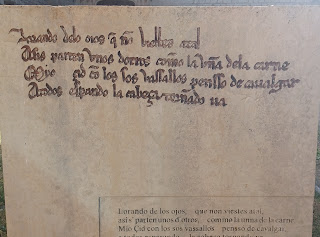 Lorando delo oios q̃ nõ viestes atal
Assi parten unos dotros como la uña dela carne
Myo çid cõ los sos vassallos pensso de caualgar
A todos esperando la cabeça tornando ua
Llorando de los ojos, que non viestes atal,
así s' parten unos d'otros, como la uña de la carne.
Mio Cid con los sus vassallos pensó de cavalgar,